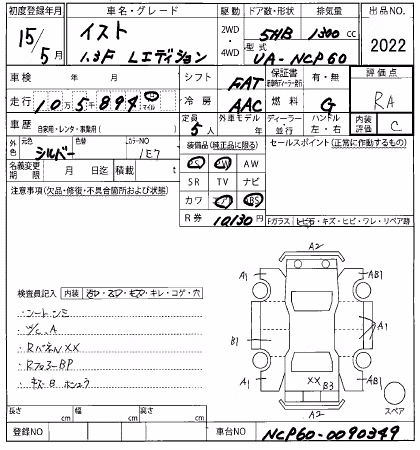 初度登録年月 車名・グレード 2WD・4WD ドア数・形状 排気量 出品NO.
15年 5月 イスト 5HB 1300 cc
1.3F Lエディション 型式 UA-NCP60 2022
車検 年 月 シフト FAT 保証書 有・無 評価点
走行 10万5千894 マイル 冷房 AAC 燃料 G RA
車歴 自家用・レンタ・事業用( ) 定員 5人 外車モデル 年 ディーラー・並行 ハンドル 左・右 内装評価 C
外色 元色 シルバー 色替 カラーNO 1E7 装備品(純正品に限る) セールスポイント(正常に作動するもの)
名義変更期限 月 日迄 積載 t PS PW AW
SR TV ナビ
注意事項(欠品・修復・不具合箇所および状態) カワ エアB ABS
R券 10,130円 Fガラス トビ石・キズ・ヒビ・ワレ・リペア跡
A2
A1 AB1
検査員記入 内装 ・キレ・コゲ・穴
シートシミ
W/C. A
B1 A1
RパネルXX
RフロアーBP
キズ凹
A1 XX B3 AB1
A2
スペア
長さ cm 幅 cm 高さ cm
登録NO 車台NO NCP60-0090349